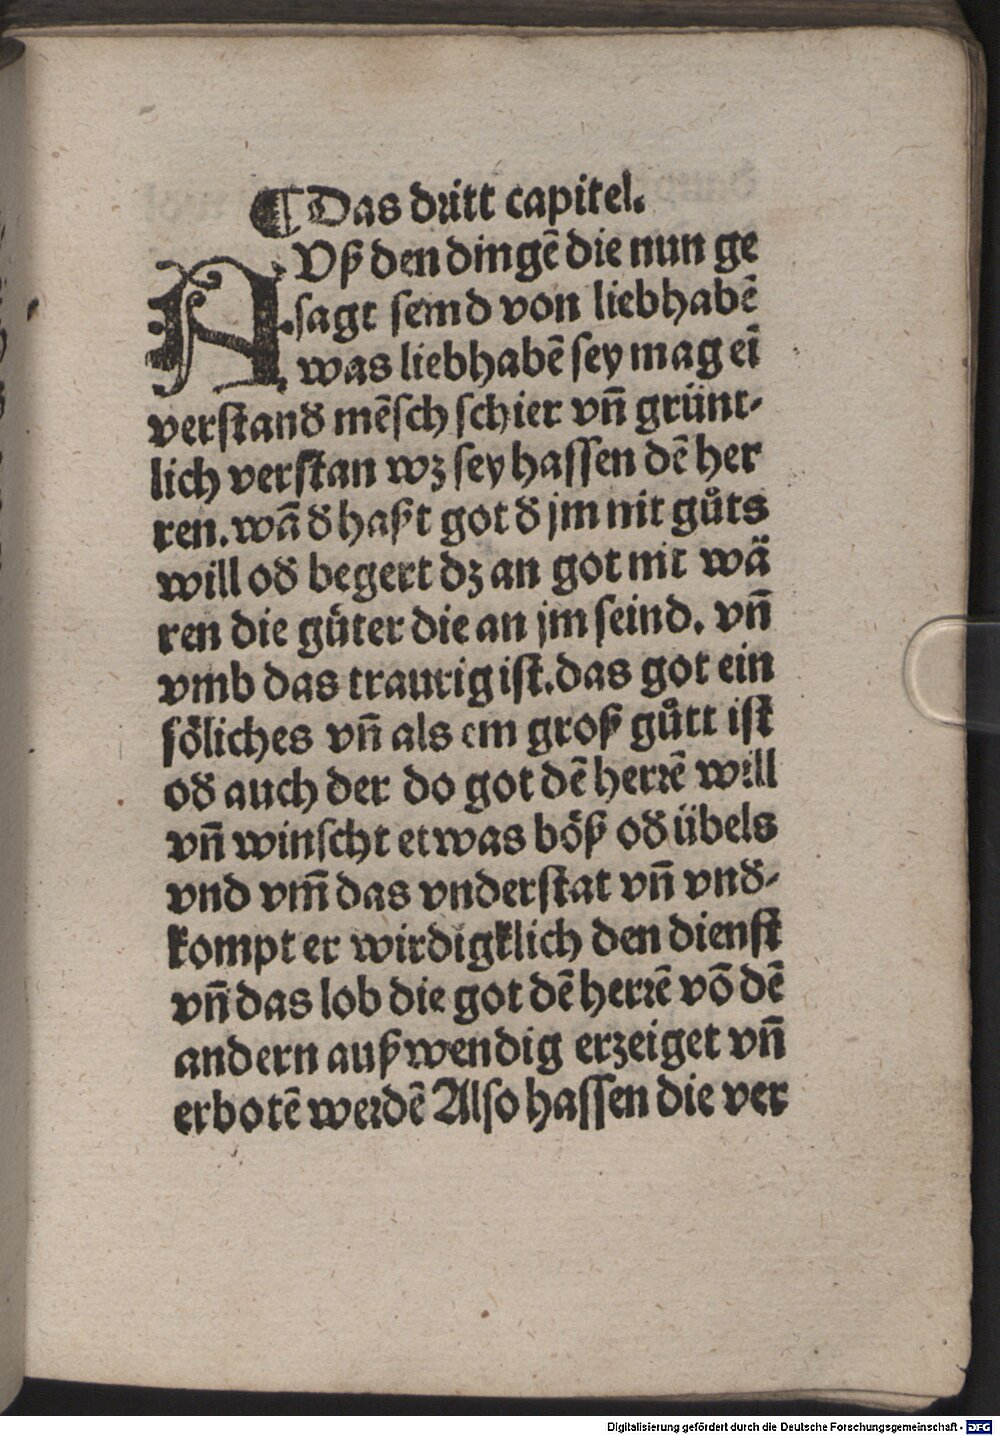 ¶ Das dritt capitel.
AVß den dingē die nun ge
sagt seind von liebhabē
was liebhabē sey mag eī
verstanđ mēsch schier vn̄ grünt-
lich verstan wz sey hassen dē her
ren. wā đ haßt got đ jm nit gůts
will ođ begert dz an got nit wä
ren die gůter die an jm seind. vn̄
vmb das traurig ist. das got ein
söliches vn̄ als ein groß gůtt ist
ođ auch der do got dē herrē will
vn̄ winscht etwas böß ođ übels
vnd vm̄ das vnderstat vn̄ vnđ-
kompt er wirdigklich den dienst
vn̄ das lob die got dē herrē vō dē
andern außwendig erzeiget vn̄
erbotē werdē Also hassen die ver
Digitalisierung gefördert durch die Deutsche Forschungsgemeinschaft - DFG